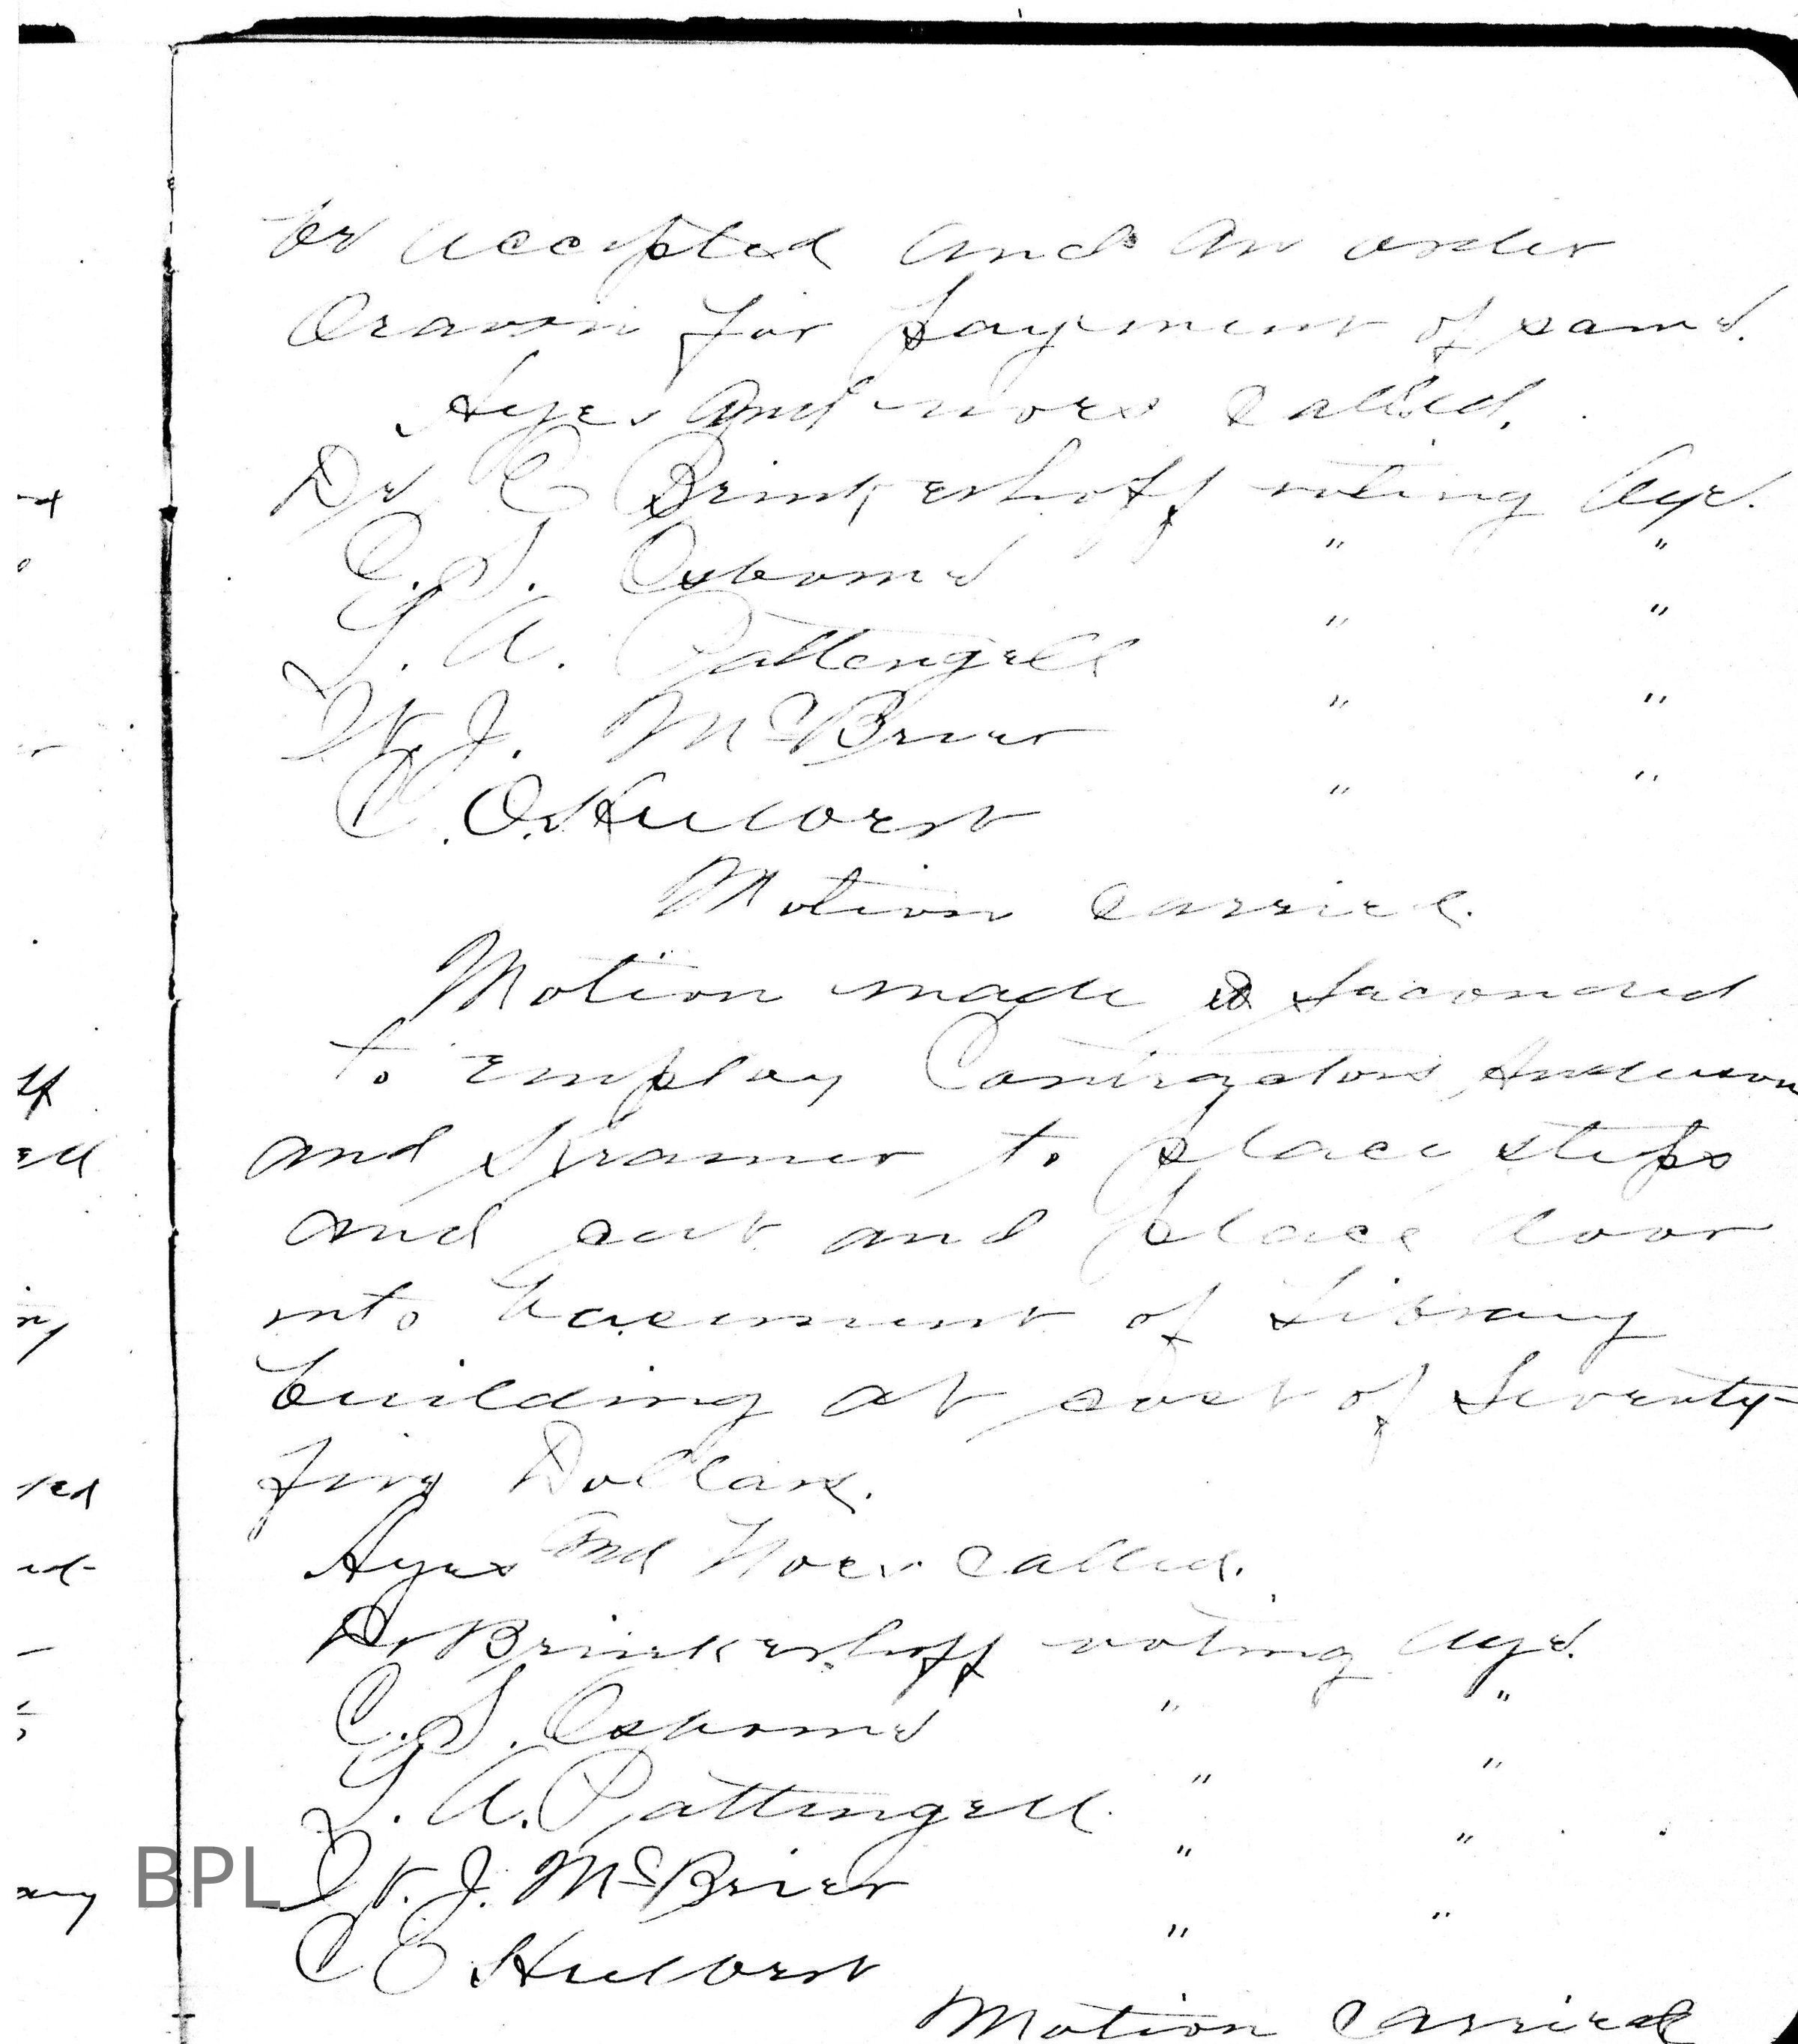 be accepted and an order
drawn for payment of same.
Ayes and noes called.
Dr C Brinkerhoff voting Aye.
C. S. Osborne " "
L. A. Pattengell " "
W. J. McBrier " "
C. O. Hulverst " "
Motion carried.
Motion made & seconded
to employ Contractors Anderson
and Kramer to place steps
and cut and place door
into basement of Library
building at cost of Seventy-
five Dollars.
Ayes and Noes called.
Dr Brinkerhoff voting Aye.
C. S. Osborne " "
L. A. Pattengell " "
W. J. McBrier " "
C E Hulverst " "
Motion carried
BPL